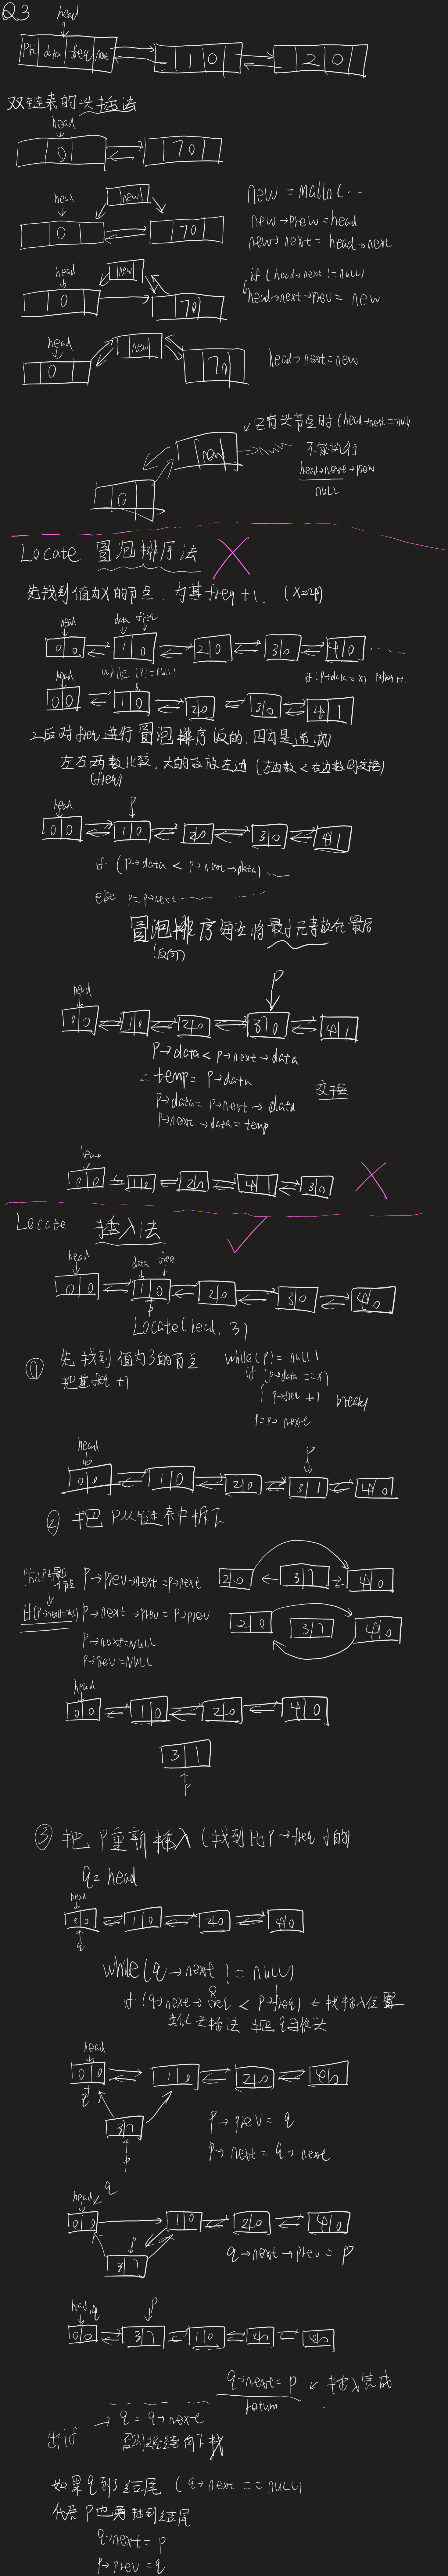 Q3
head
Pri data freq next
1 0
2 0
双链表的头插法
head
0
7 0
head
new
0
7 0
new = malln(...
new→prev = head
new→next = head→next
head
new
0
7 0
if (head→next != null)
head→next→prev = new
head
new
0
7 0
head→next = new
只有头节点时 (head→next == null)
new
不能执行
head→next→prev
null
0
Locate 冒泡排序法
先找到值为X的节点, 为其freq+1. (X=4)
head data freq
0 0 1 0 2 0 3 0 4 0 ....
while (p != null) if (p→data = x) p→freq++
head
0 0 1 0 2 0 3 0 4 1
之后对freq进行冒泡排序 反的, 因为是递减
左右两数比较, 大的数放左边 (左边数 < 右边数 则交换)
(freq)
head p
0 0 1 0 2 0 3 0 4 1
if (p→data < p→next→data) ....
else p = p→next ....
冒泡排序每次将最小元素放在最后
(反向)
p
head
0 0 1 0 2 0 3 0 4 1
p→data < p→next→data
∴ temp = p→data
p→data = p→next→data
p→next→data = temp
交换
head
0 0 1 0 2 0 4 1 3 0
Locate 插入法
head data freq
0 0 1 0 2 0 3 0 4 0
p
Locate(head, 3)
① 先找到值为3的节点
把其freq +1
while (p != null)
if (p→data == x)
{ p→fre + 1 break}
p = p→next
head p
0 0 1 0 2 0 3 1 4 0
② 把P从链表中拆下
p→prev→next = p→next
2 0 3 1 4 0
if (p→next != null) p→next→prev = p→prev
2 0 3 1 4 0
p→next = NULL
p→prev = NULL
head
0 0 1 0 2 0 4 0
3 1
p
③ 把P重新插入 (找到比P→freq小的)
q = head
head
0 0 1 0 2 0 4 0
q
while (q→next != null)
if (q→next→freq < p→freq) ← 找插入位置
类似头插法, 把q当作头
head
0 0 1 0 2 0 4 0
q
3 1
p
p→prev = q
p→next = q→next
head q
0 0 1 0 2 0 4 0
p
3 1
q→next→prev = p
head, q p
0 0 3 1 1 0 2 0 4 0
q→next = p ← 插入完成
return
出if → q = q→next
否则继续向下找
如果q到了结尾. (q→next == null)
代表P也要插到结尾.
q→next = p
p→prev = q